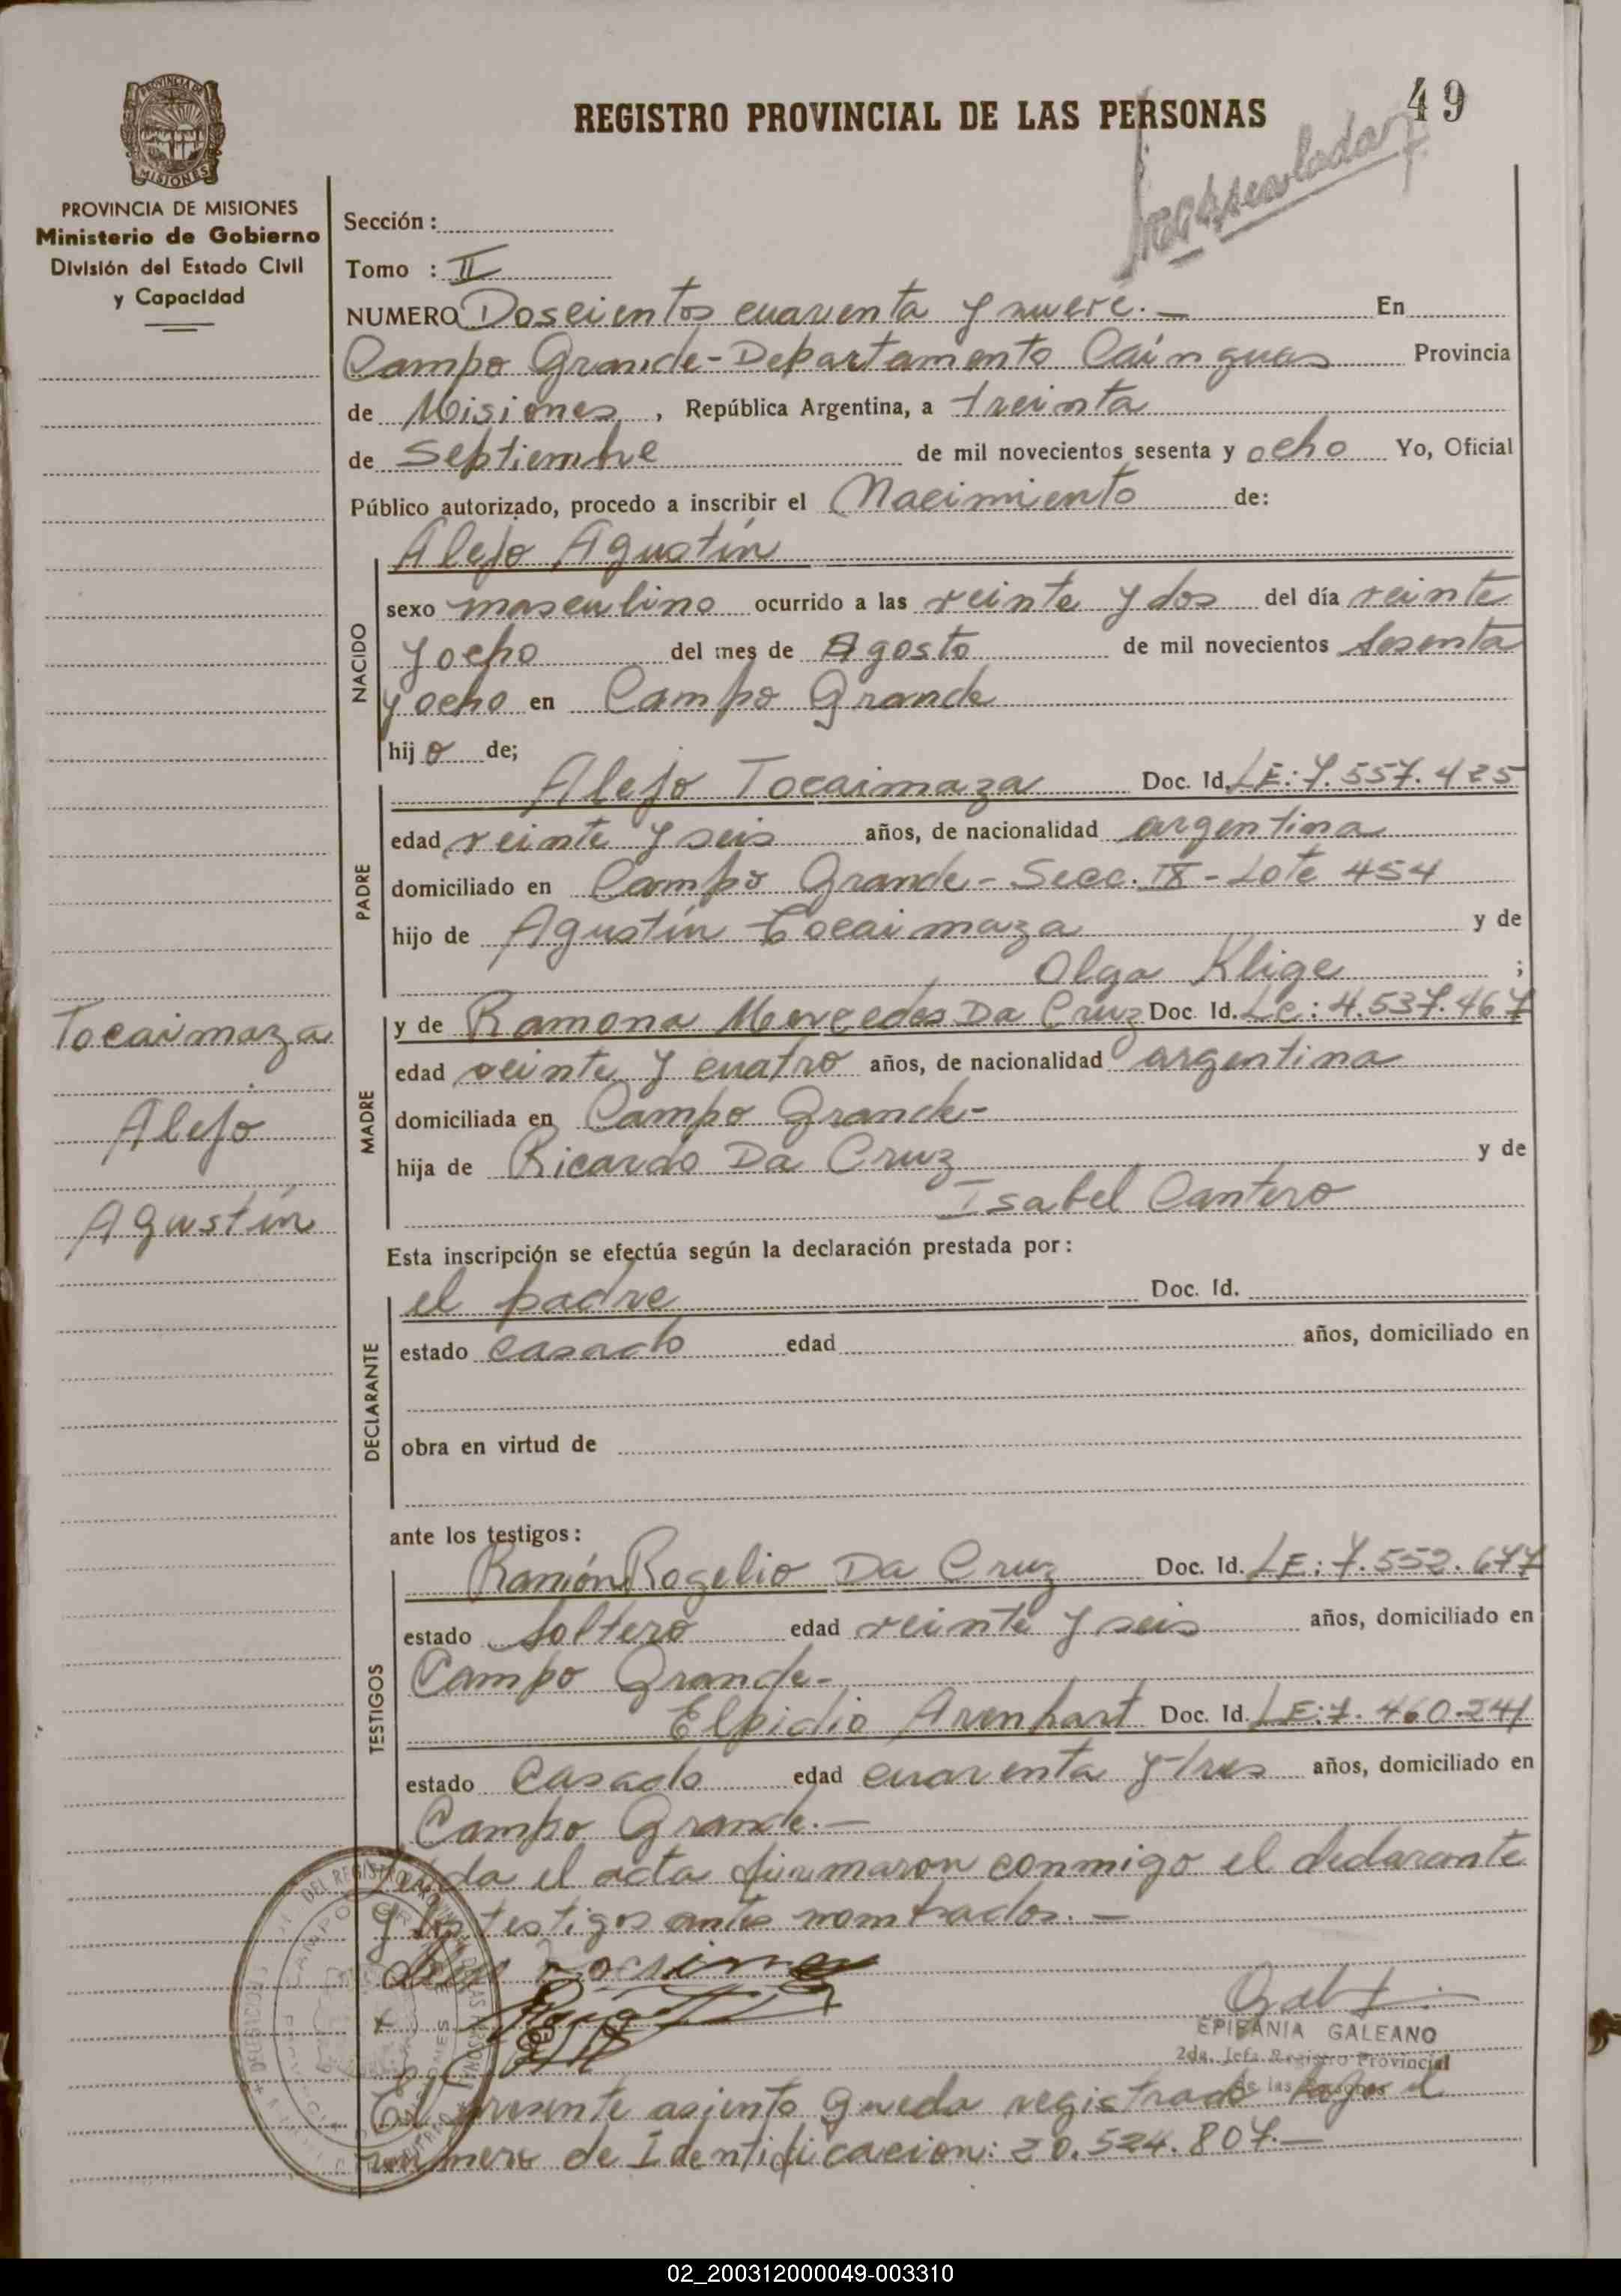 49
REGISTRO PROVINCIAL DE LAS PERSONAS
PROVINCIA DE
MISIONES
PROVINCIA DE MISIONES
Ministerio de Gobierno
División del Estado Civil
y Capacidad
Sección :
Tomo : II
NUMERO Doscientos cuarenta y nueve.— En
Campo Grande-Departamento Cainguas Provincia
de Misiones, República Argentina, a treinta
de Septiembre de mil novecientos sesenta y ocho Yo, Oficial
Público autorizado, procedo a inscribir el Nacimiento de:
Alejo Agustín
NACIDO
sexo masculino ocurrido a las veinte y dos del día veinte
y ocho del mes de Agosto de mil novecientos sesenta
y ocho en Campo Grande
hijo de;
PADRE
Alejo Tocaimaza Doc. Id. LE: 7.557.425
edad veinte y seis años, de nacionalidad argentina
domiciliado en Campo Grande- Secc. IX - Lote 454
hijo de Agustín Tocaimaza y de
Olga Klige ;
MADRE
y de Ramona Mercedes Da Cruz Doc. Id. Lc: 4.537.467
edad veinte y cuatro años, de nacionalidad argentina
domiciliada en Campo Grande-
hija de Ricardo Da Cruz y de
Isabel Cantero
Tocaimaza
Alejo
Agustín
Esta inscripción se efectúa según la declaración prestada por:
DECLARANTE
el padre Doc. Id.
estado casado edad años, domiciliado en
obra en virtud de
ante los testigos:
TESTIGOS
Ramón Rogelio Da Cruz Doc. Id. LE: 7.552.677
estado soltero edad veinte y seis años, domiciliado en
Campo Grande-
Elpidio Arenhart Doc. Id. LE: 7.460.241
estado Casado edad cuarenta y tres años, domiciliado en
Campo Grande.—
Leida el acta firmaron conmigo el declarante
y los testigos antes nombrados.—
EPIFANIA GALEANO
2da. Jefa Registro Provincial
de las
El presente asiento queda registrado bajo el
numero de Identificacion: 20.524.807.—
02_200312000049-003310